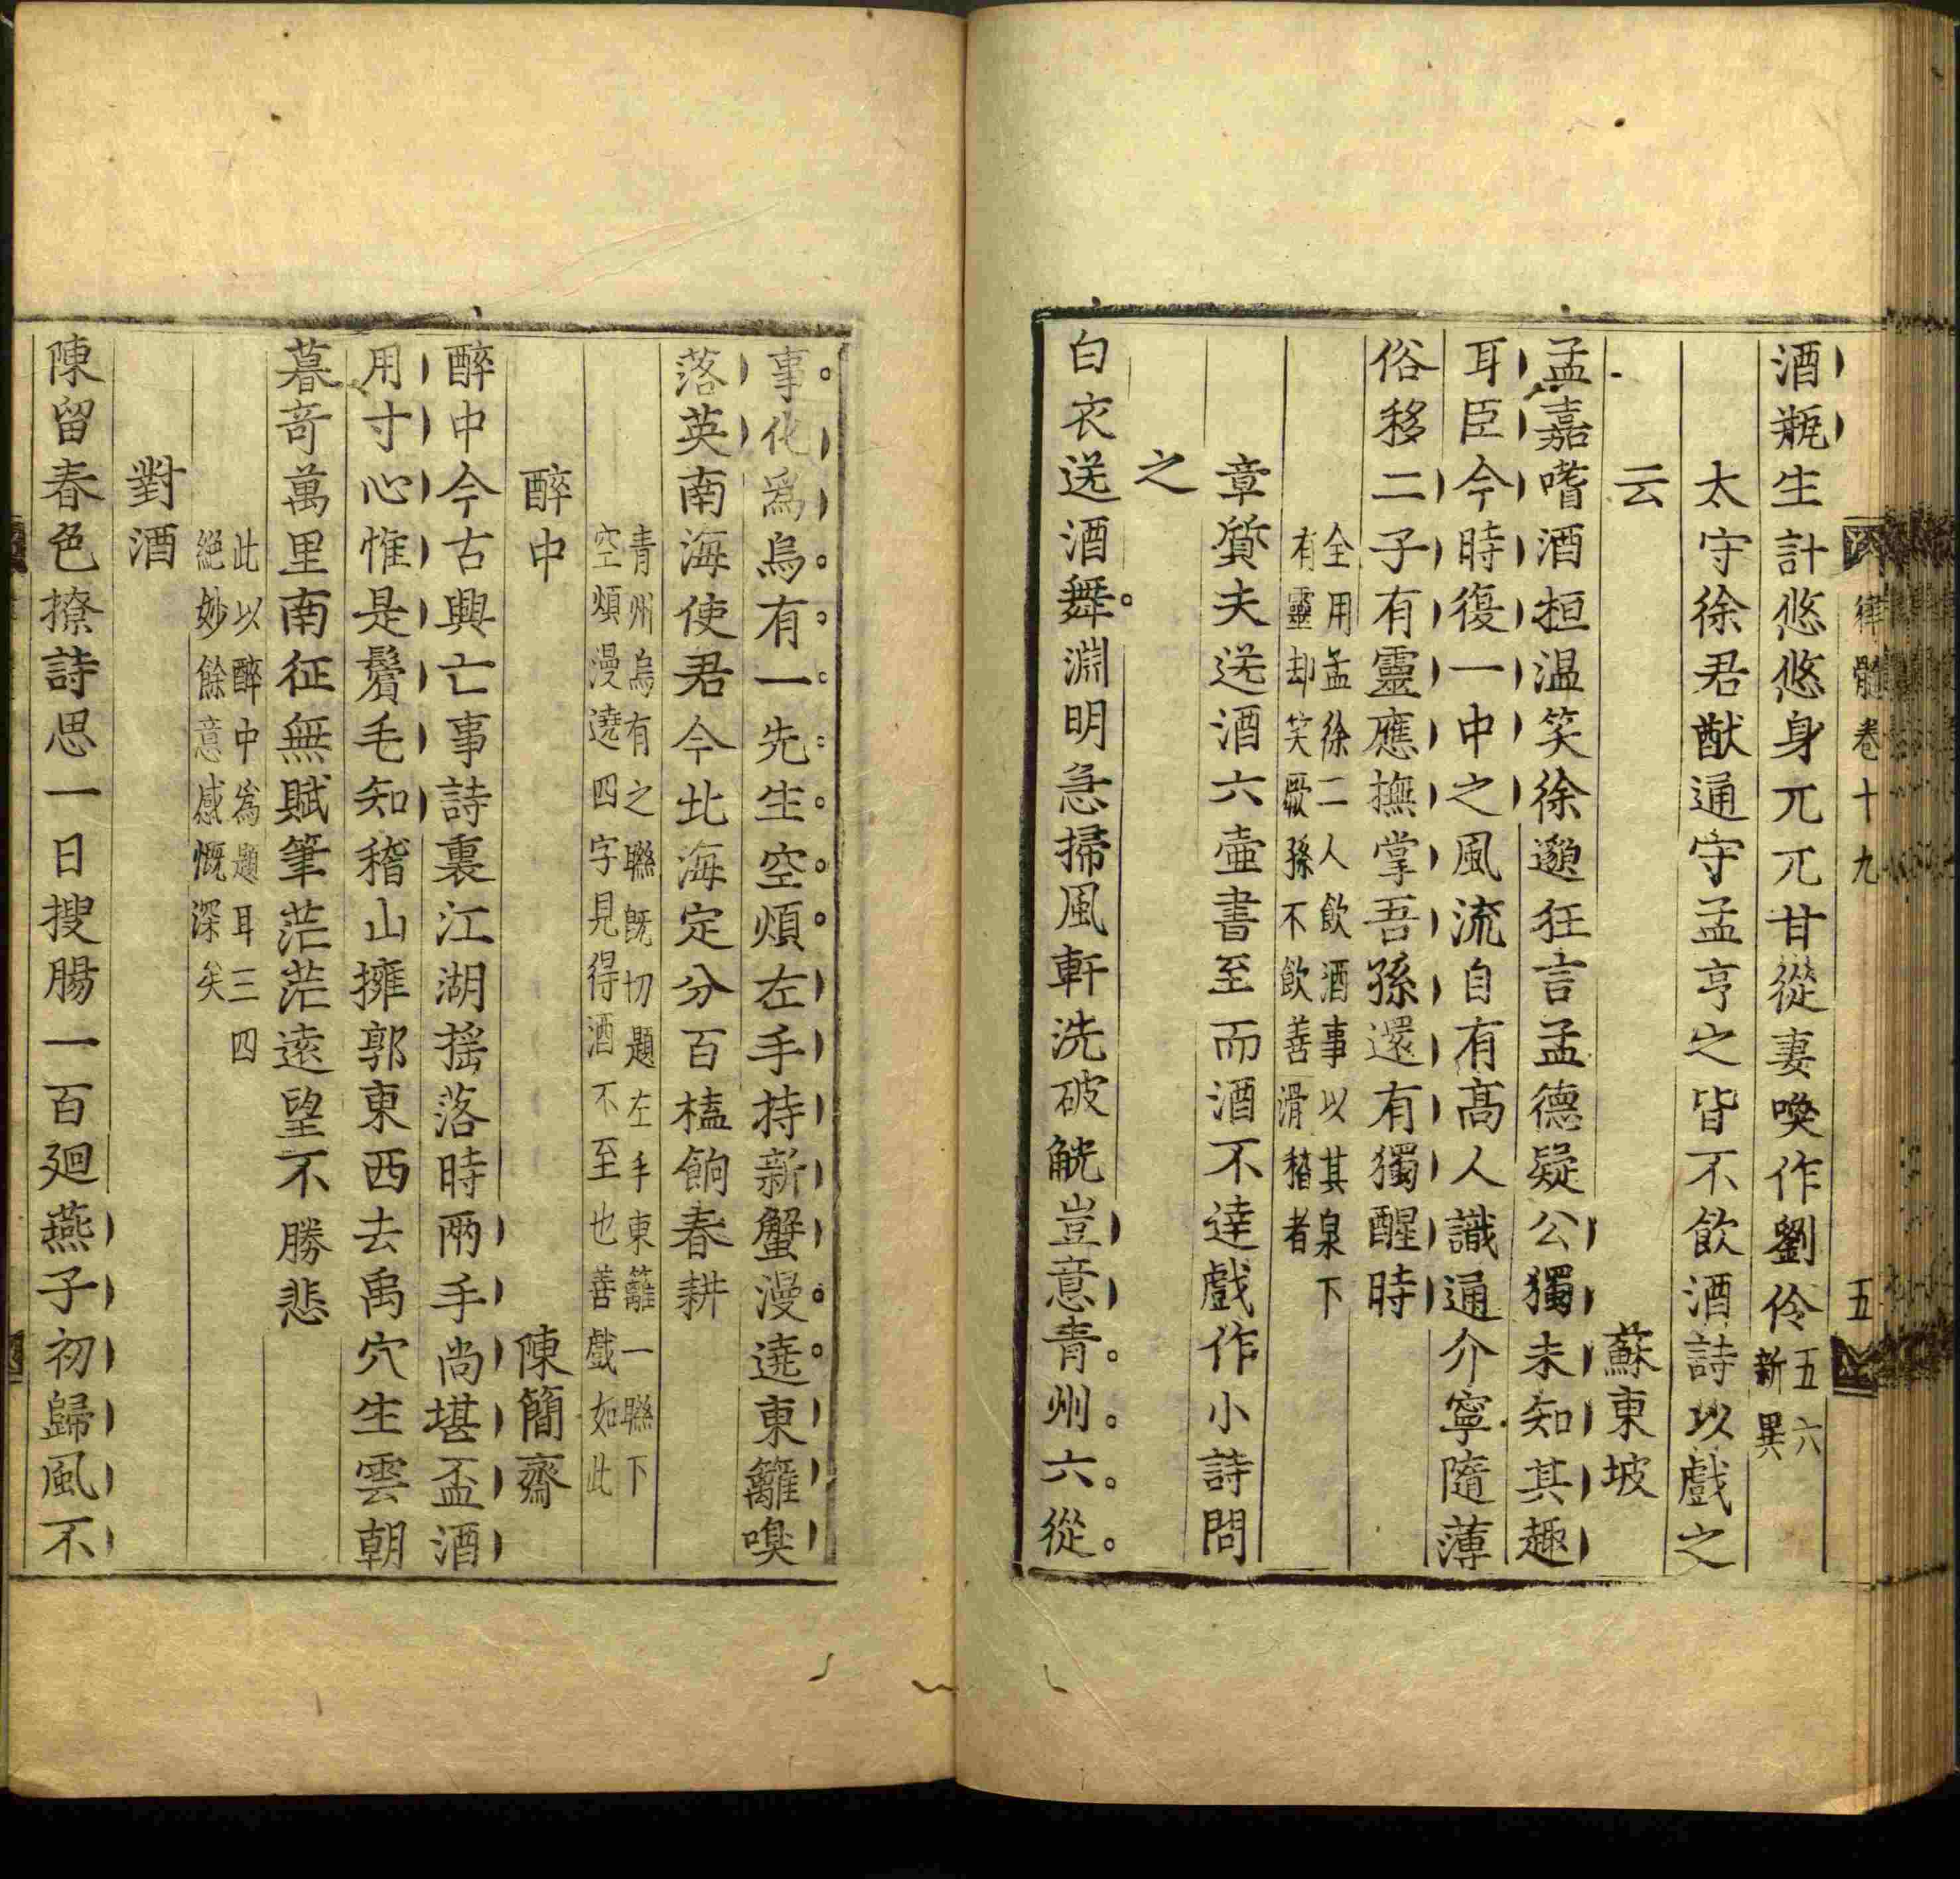 律髓卷十九 五
酒瓶生計悠悠身兀兀甘從妻喚作劉伶五六新異
太守徐君猷通守孟亨之皆不飲酒詩以戲之
云 蘇東坡
孟嘉嗜酒桓温笑徐邈狂言孟德疑公獨未知其趣
耳臣今時復一中之風流自有髙人識通介寧隨薄
俗移二子有靈應撫掌吾孫還有獨醒時
全用孟徐二人飲酒事以其泉下
有靈却笑厥孫不飲善滑稽者
章質夫送酒六壷書至而酒不達戲作小詩問
之
白衣送酒舞淵明急掃風軒洗破觥豈意青州六從
事化爲烏有一先生空煩左手持新蟹漫遶東籬嗅
落英南海使君今北海定分百榼餉春耕
青州烏有之聯既切題左手東籬一聯下
空煩漫遶四字見得酒不至也善戲如此
醉中 陳簡齋
醉中今古興亡事詩裏江湖揺落時兩手尚堪盃酒
用寸心惟是鬢毛知稽山擁郭東西去禹穴生雲朝
暮竒萬里南征無賦筆茫茫遠望不勝悲
此以醉中爲題耳三四
絕妙餘意感慨深矣
對酒
陳留春色撩詩思一日搜腸一百廻燕子初歸風不